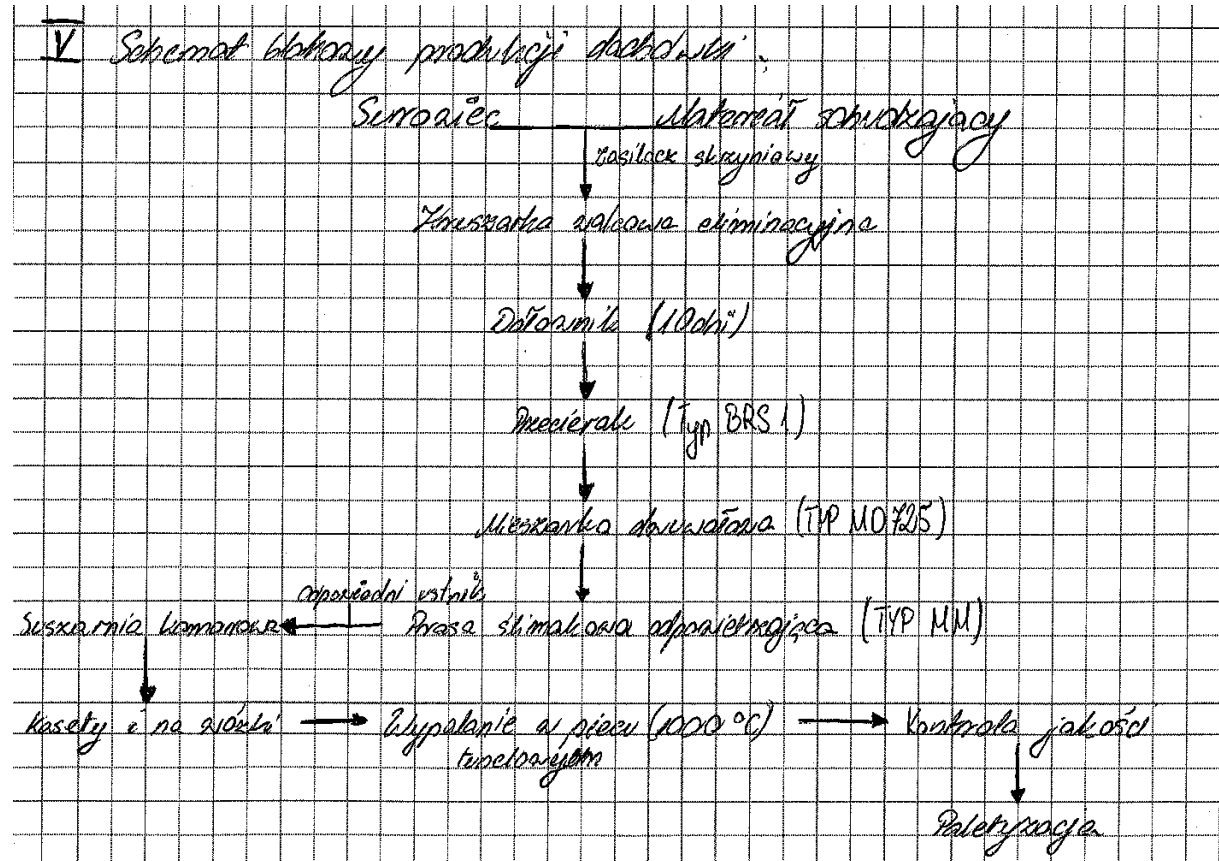 V Schemat blokowy produkcji dachówki:
Surowiec Materiał schudzający
zasilacz skrzyniowy
Kruszarka walcowa eliminacyjna
Dołownik (10 dni)
Przecierak (Typ BRS 1)
Mieszarka dwuwałowa (TYP MO725)
odpowiedni ustnik
Suszarnia komorowa Prasa ślimakowa odpowietrzająca (TYP MM)
Kasety i na wózki Wypalanie w piecu (1000 °C) Kontrola jakości
tunelowym
Paletyzacja